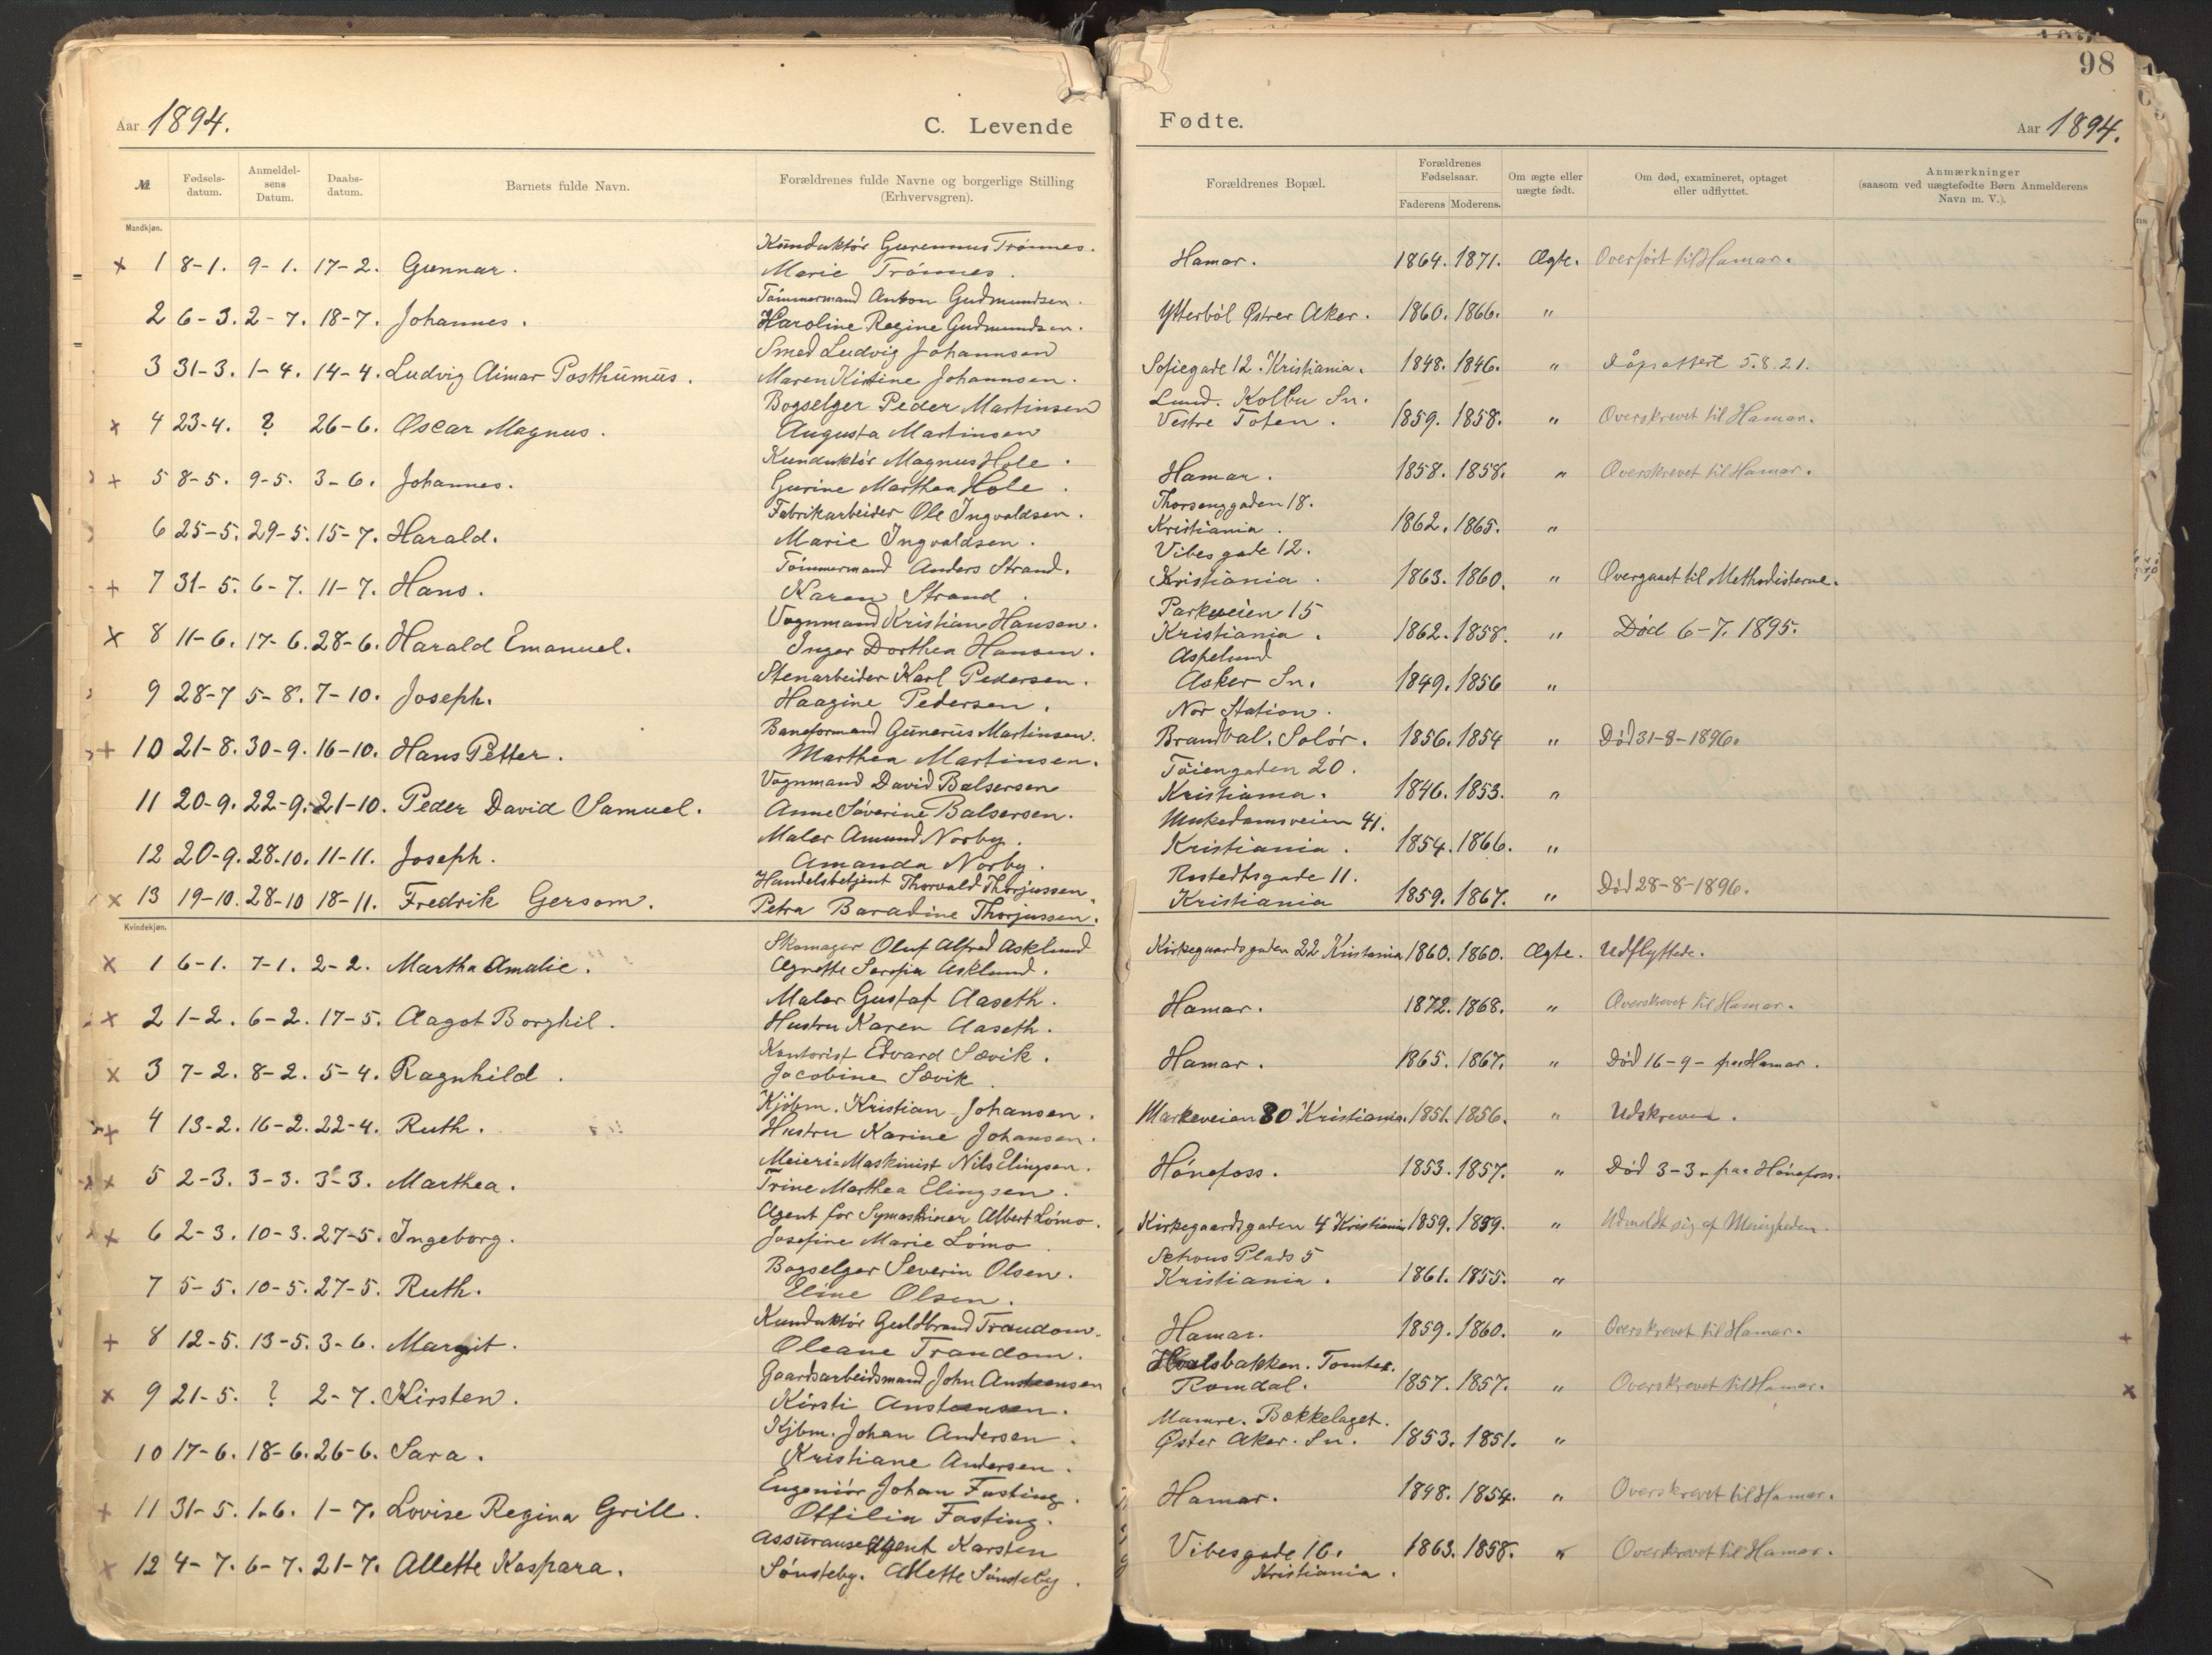 98
Aar 1894. C. Levende Fødte. Aar 1894.
№ Fødsels-datum. Anmeldel-sens Datum. Daabs-datum. Barnets fulde Navn. Forældrenes fulde Navne og borgerlige Stilling (Erhvervsgren). Forældrenes Bopæl. Forældrenes Fødselsaar. Faderens Moderens. Om ægte eller uægte født. Om død, examineret, optaget eller udflyttet. Anmærkninger (saasom ved uægtefødte Børn Anmelderens Navn m. V.).
Mandkjøn.
x 1 8-1. 9-1. 17-2. Gunnar. Kunduktör Trönnes. Marie Trönnes. Hamar. 1864. 1871. Ægte. Overført til Hamar.
2 6-3. 2-7. 18-7. Johannes. Tömmermand Anton Gudmundsen. Karoline Regine Gudmundsen. Ytterböl Østrer Aker. 1860. 1866. "
3 31-3. 1-4. 14-4. Ludvig Aimar Posthumus. Smed Ludvig Johannsen Maren Kistine Johannsen. Sofiegade 12. Kristiania. 1848. 1846. " Dåpsattest 5.8.21.
x 4 23-4. ? 26-6. Oscar Magnus. Bogselger Peder Martinsen Augusta Martinsen Lund. Kolbu Sn. Vestre Toten. 1859. 1858. " Overskrevet til Hamar.
+ 5 8-5. 9-5. 3-6. Johannes. Kunduktör Magnus Hole. Gurine Marthea Hole. Hamar. 1858. 1858. " Overskrevet til Hamar.
6 25-5. 29-5. 15-7. Harald. Fabrikarbeider Ole Ingvaldsen. Marie Ingvaldsen. Thorsenggaden 18. Kristiania. 1862. 1865. "
+ 7 31-5. 6-7. 11-7. Hans. Tömmermand Anders Strand. Karen Strand. Vibesgade 12. Kristiania. 1863. 1860. " Overgaaet til Methodisterne.
x 8 11-6. 17-6. 28-6. Harald Emanuel. Vognmand Kristian Hansen. Inger Dorthea Hansen. Parkveien 15 Kristiania. 1862. 1858. " Død 6-7. 1895.
9 28-7 5-8. 7-10. Joseph. Stenarbeider Karl Pedersen. Haagine Pedersen. Aspelund Asker Sn. 1849. 1856 "
+ 10 21-8. 30-9. 16-10. Hans Petter. Baneformand Gunerius Martinsen. Marthea Martinsen. Nor Station. Brandval. Solör. 1856. 1854 " Død 31-8-1896.
11 20-9. 22-9. 21-10. Peder David Samuel. Vognmand David Balsersen Anne Söverine Balsersen. Töiengaden 20. Kristiania. 1846. 1853. "
12 20-9. 28-10. 11-11. Joseph. Maler Amund Norby. Amanda Norby. Munkedamsveien 41. Kristiania. 1854. 1866. "
x 13 19-10. 28-10 18-11. Fredrik Gersom. Handelsbetjent Thorvald Thorjussen Petra Baradine Thorjussen. Rostedtsgade 11. Kristiania 1859. 1867. " Død 28-8-1896.
Kvindekjøn.
x 1 6-1. 7-1. 2-2. Martha Amalie. Skomager Oluf Alfred Asklund Agnette Serefia Asklund. Kirkegaardsgaden 22 Kristiania 1860. 1860. Ægte. Udflyttede.
x 2 1-2. 6-2. 17-5. Aagot Borghil. Maler Gustaf Aaseth. Hustru Karen Aaseth. Hamar. 1872. 1868. " Overskrevet til Hamar.
x 3 7-2. 8-2. 5-4. Ragnhild. Kontorist Edvard Sævik. Jacobine Sævik Hamar. 1865. 1867. " Död 16-9- paa Hamar.
+ 4 13-2. 16-2. 22-4. Ruth. Kjöbm. Kristian Johansen. Hustru Karine Johansen. Markeveien 80 Kristiania. 1851. 1856. " Udskreven.
x 5 2-3. 3-3. 3-3. Marthea. Meieri-Maskinist Nils Elingsen. Trine Marthea Elingsen. Hönefoss. 1853. 1857. " Död 3-3- paa Hönefoss.
+ 6 2-3. 10-3. 27-5. Ingeborg. Agent for Symaskiner Albert Lömo. Josefine Marie Lömo. Kirkegaardsgaden 4 Kristiania 1859. 1859. " Udmeldt sig af Menigheden.
7 5-5. 10-5. 27-5. Ruth. Bogselger Severin Olsen. Eline Olsen. Schous Plads 5 Kristiania. 1861. 1855. "
+ 8 12-5. 13-5. 3-6. Margit. Kunduktör Guldbrand Trandom. Oleane Trandom. Hamar. 1859. 1860. " Overskrevet til Hamar. +
x 9 21-5. ? 2-7. Kirsten. Gaardsarbeidsmand John Austeensen Kirsti Austeensen. Hvalsbakken. Tomter. Romdal. 1857. 1857. " Overskrevet til Hamar. x
10 17-6. 18-6. 26-6. Sara. Kjbm. Johan Andersen. Kristiane Andersen. Mamre. Bækkelaget. Øster Aker. Sn. 1853. 1851. "
+ 11 31-5. 1-6. 1-7. Lovise Regina Grill. Engeniör Johan Fasting. Ottilia Fasting. Hamar. 1848. 1854. " Overskrevet til Hamar.
x 12 4-7. 6-7. 21-7. Allette Kaspara. Assüranse Agent Karsten Sönsteby. Allette Sönsteby. Vibesgade 16. Kristiania. 1863. 1858. " Overskrevet til Hamar.